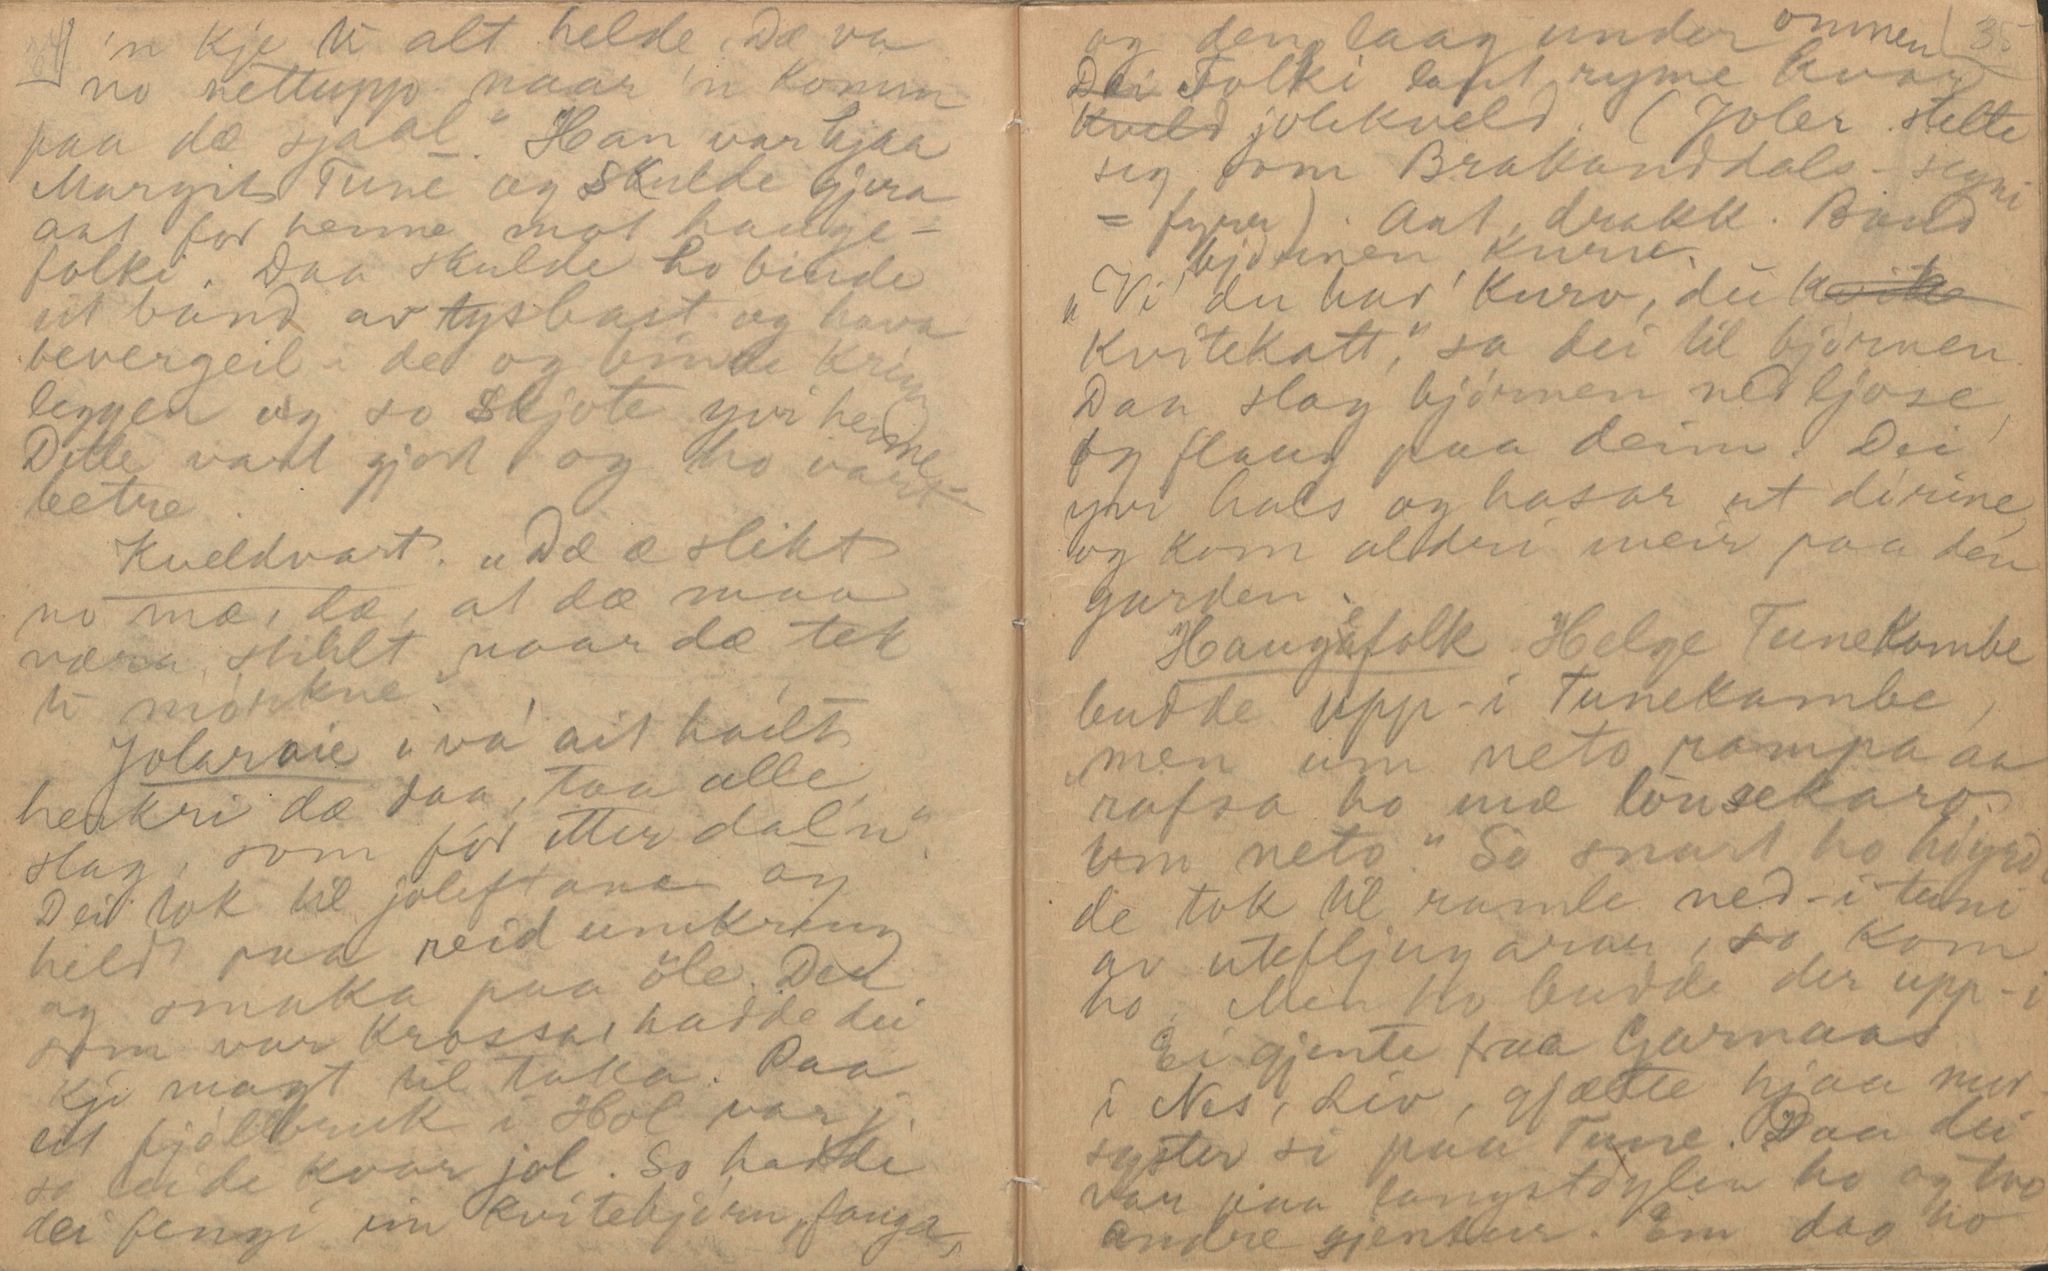 34
'n kje ti alt helde. Dæ va
no nettupp naar 'n komm
paa dæ sjaal." Han var hjaa
Margit Tune og skulde gjera
aat for henne mot hauge-
folki. Daa skulde ho binde
eit band av tysbast og hava
bevergeil i de og binde kring
leggen og so skjote yvi henne
Dette vart gjort og ho vart
betre.
Kveldvart. „Dæ æ slikt
no mæ, dæ, at dæ maa
væra stillt naar dæ tek
ti mørkne."
Jolaraie „va' ait hailt
henkri dæ daa, taa alle
slag, som for etter dal'n".
Dei tok til joleftane og
held paa reid umkring
og smaka paa öle. Det
som var krossa, hadde dei
kje magt til taka. Paa
eit fjøllbruk i Hol var j.
so leide kvar jol. So hadde
dei fengi ein kvitebjørn, fanga,
35
og den laag under omnen
Dei Folki laut ryme kvar
kveld jolekveld. (Joler stelte
seg som Brabanddals-segni
= fyrr). Aat, drakk. Baud
bjørnen kurv.
„Vi' du ha' kurv, du kvite
kvitekatt," sa dei til bjørnen.
Daa slog bjørnen ned ljose,
og flaug paa deim. Dei
yvi hals og hasar ut dirine,
og kom aldri meir paa den
garden.
Haugafolk Helge Tunekambe
budde upp-i Tunekambe,
„men um neto rampa aa
rafsa ho mæ lönsekaro
um neto." So snart ho høyrd
de tok til ramle ned-i tuni
av utefljugarar, so kom
ho. Men ho budde der upp-i
Ei gjente fraa Garnaas
i Nes, Liv, gjætte hjaa mor-
syster si paa Tune. Daa dei
var paa langstøylen ho og two
andre gjentur. Ein dag ho